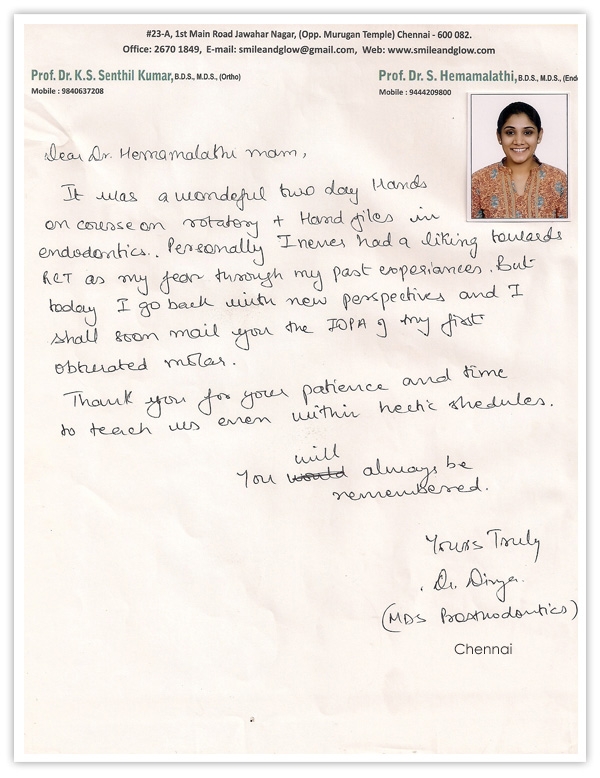 #23-A, 1st Main Road Jawahar Nagar, (Opp. Murugan Temple) Chennai - 600 082.
Office: 2670 1849, E-mail: smileandglow@gmail.com, Web: www.smileandglow.com
Prof. Dr. K.S. Senthil Kumar, B.D.S., M.D.S., (Ortho)
Mobile : 9840637208
Prof. Dr. S. Hemamalathi, B.D.S., M.D.S., (End
Mobile : 9444209800
Dear Dr. Hemamalathi mam,
It was a wondeful two day Hands
on course on rotatory + Hand files in
endodontics.. Personally I never had a liking towards
RCT as my fear through my past experiances. But
today I go back with new perspectives and I
shall soon mail you the IOPA of my first
obturated molar.
Thank you for your patience and time
to teach us even within hectic shedules.
will
You would always be
remembered.
Yours Truly
Dr. Divya
(MDS Prosthodontics)
Chennai